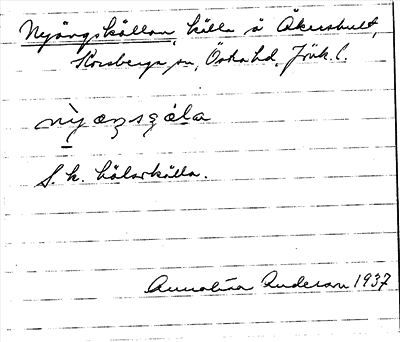 Nyängskällan, källa å Åkershult,
Korsberga sn, Östra hd, Jönk. l.
nỳæŋsçæla
S. k. hälsokälla.
Annalisa Anderson 1937